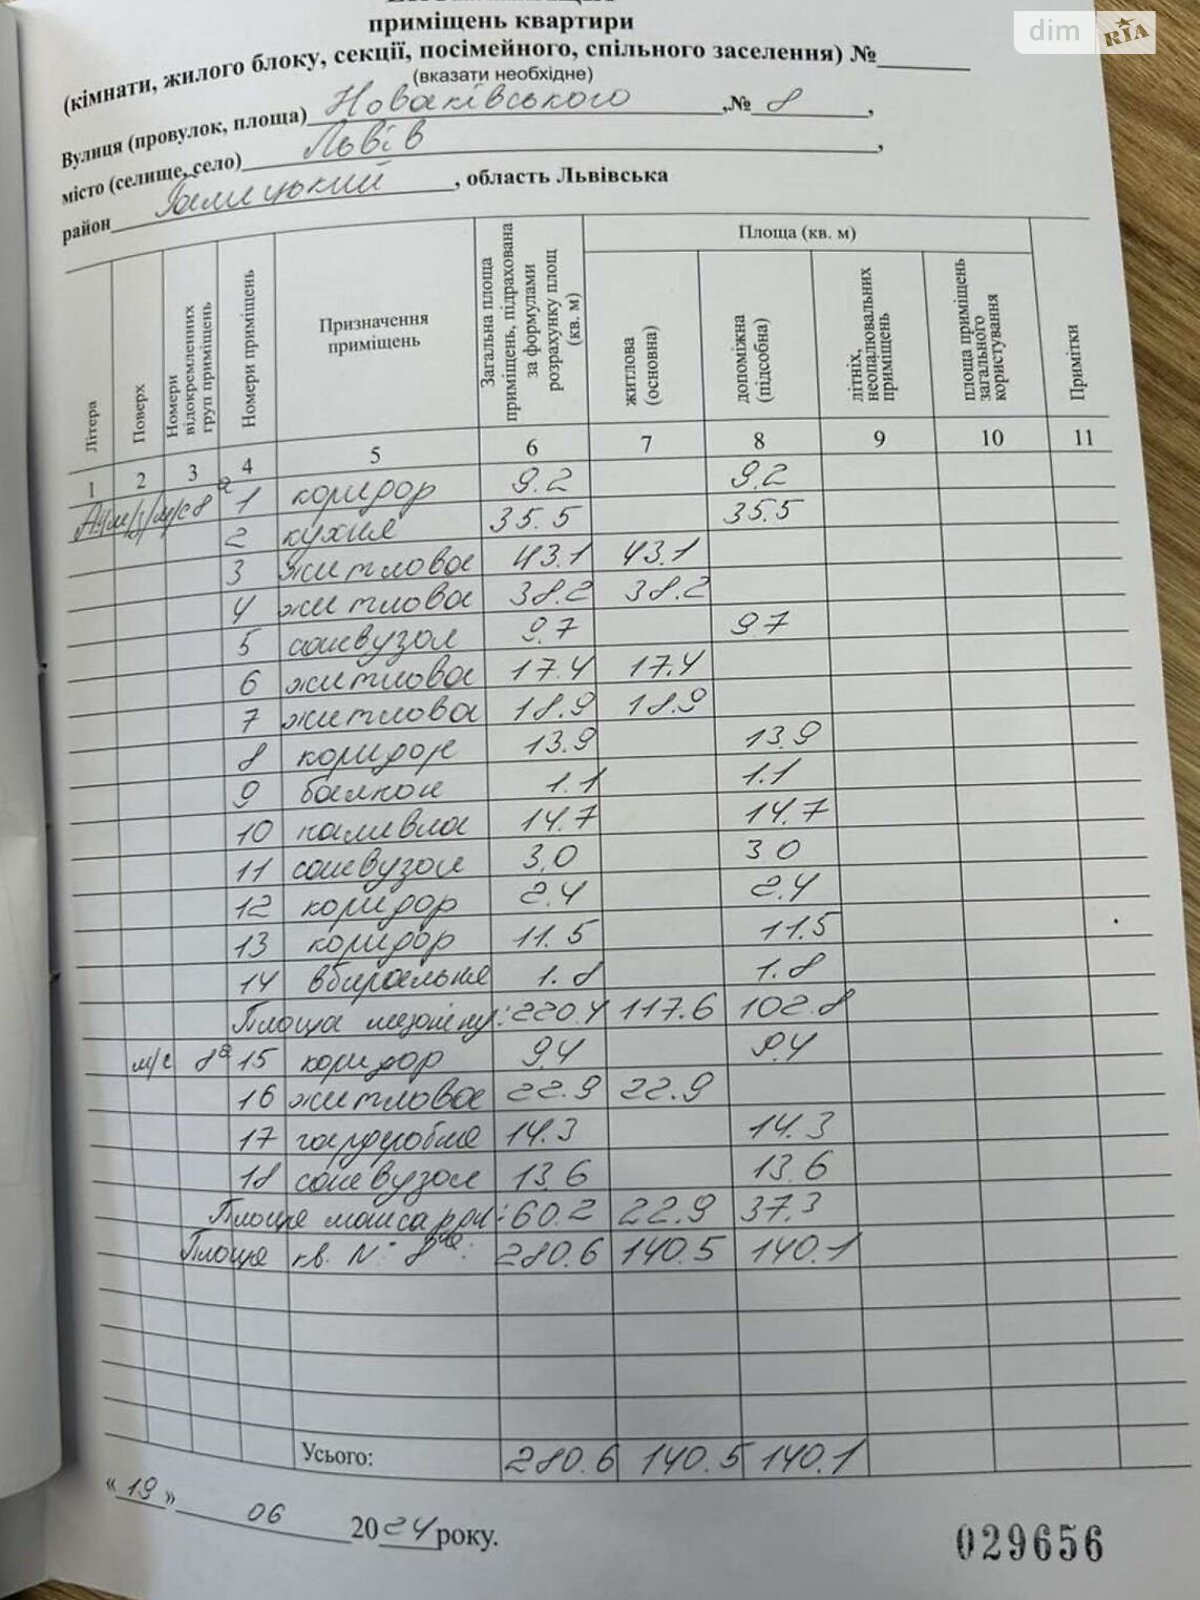 dim RIA
приміщень квартири
(кімнати, жилого блоку, секції, посімейного, спільного заселення) №
(вказати необхідне)
Вулиця (провулок, площа) Новаківського, № 8,
місто (селище, село) Львів,
район Галицький, область Львівська
Літера Поверх Номери відокремленних груп приміщень Номери приміщень Призначення приміщень Загальна площа приміщень, підрахована за формулами розрахунку площ (кв. м) Площа (кв. м) Примітки
житлова (основна) допоміжна (підсобна) літніх, неопалювальних приміщень площа приміщень загального користування
1 2 3 4 5 6 7 8 9 10 11
8а 1 коридор 9.2 9.2
2 кухня 35.5 35.5
3 житлова 43.1 43.1
4 житлова 38.2 38.2
5 санвузол 9.7 9.7
6 житлова 17.4 17.4
7 житлова 18.9 18.9
8 коридор 13.9 13.9
9 балкон 1.1 1.1
10  14.7 14.7
11 санвузол 3.0 3.0
12 коридор 2.4 2.4
13 коридор 11.5 11.5
14 вбиральня 1.8 1.8
Площа : 220.4 117.6 102.8
м/с 8а 15 коридор 9.4 9.4
16 житлова 22.9 22.9
17 гардеробна 14.3 14.3
18 санвузол 13.6 13.6
Площа мансарди: 60.2 22.9 37.3
Площа кв. № 8а: 280.6 140.5 140.1
Усього: 280.6 140.5 140.1
«19» 06 2024 року.
029656